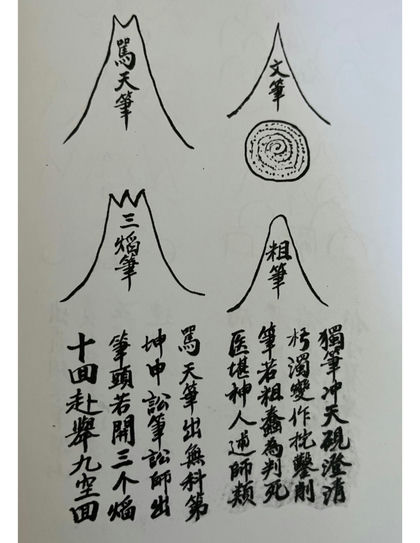 文筆
罵天筆
粗筆
三熖筆
獨筆冲天硯澄清
朽濁變作鑿削
筆若粗蠢為判死
医堪神人師類
罵天筆出無科第
坤申訟筆訟師出
筆頭若開三个熖
十回赴舉九空回